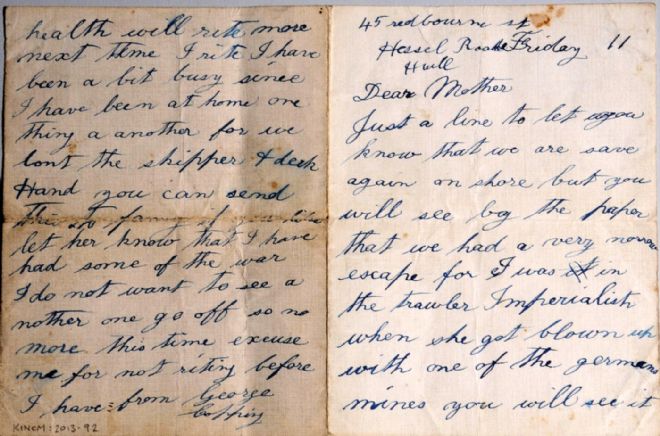 45 redbourne st
Hessel Roade Friday 11
Hull
Dear Mother
Just a line to let you
know that we are save
again on shore but you
will see by the paper
that we had a very norrow
escape for I was in
the trawler Imperialist
when she got blown up
with one of the germans
mines you will see it
health will rite more
next time I rite I have
been a bit busy since
I have been at home one
thing a another for we
lost the skipper & deck
Hand you can send
This to fanny if you like
let her know that I have
had some of the war
I do not want to see a
nother one go off so no
more this time excuse
me for not riting before
I have: from George
Copping
KINCM:2013-92